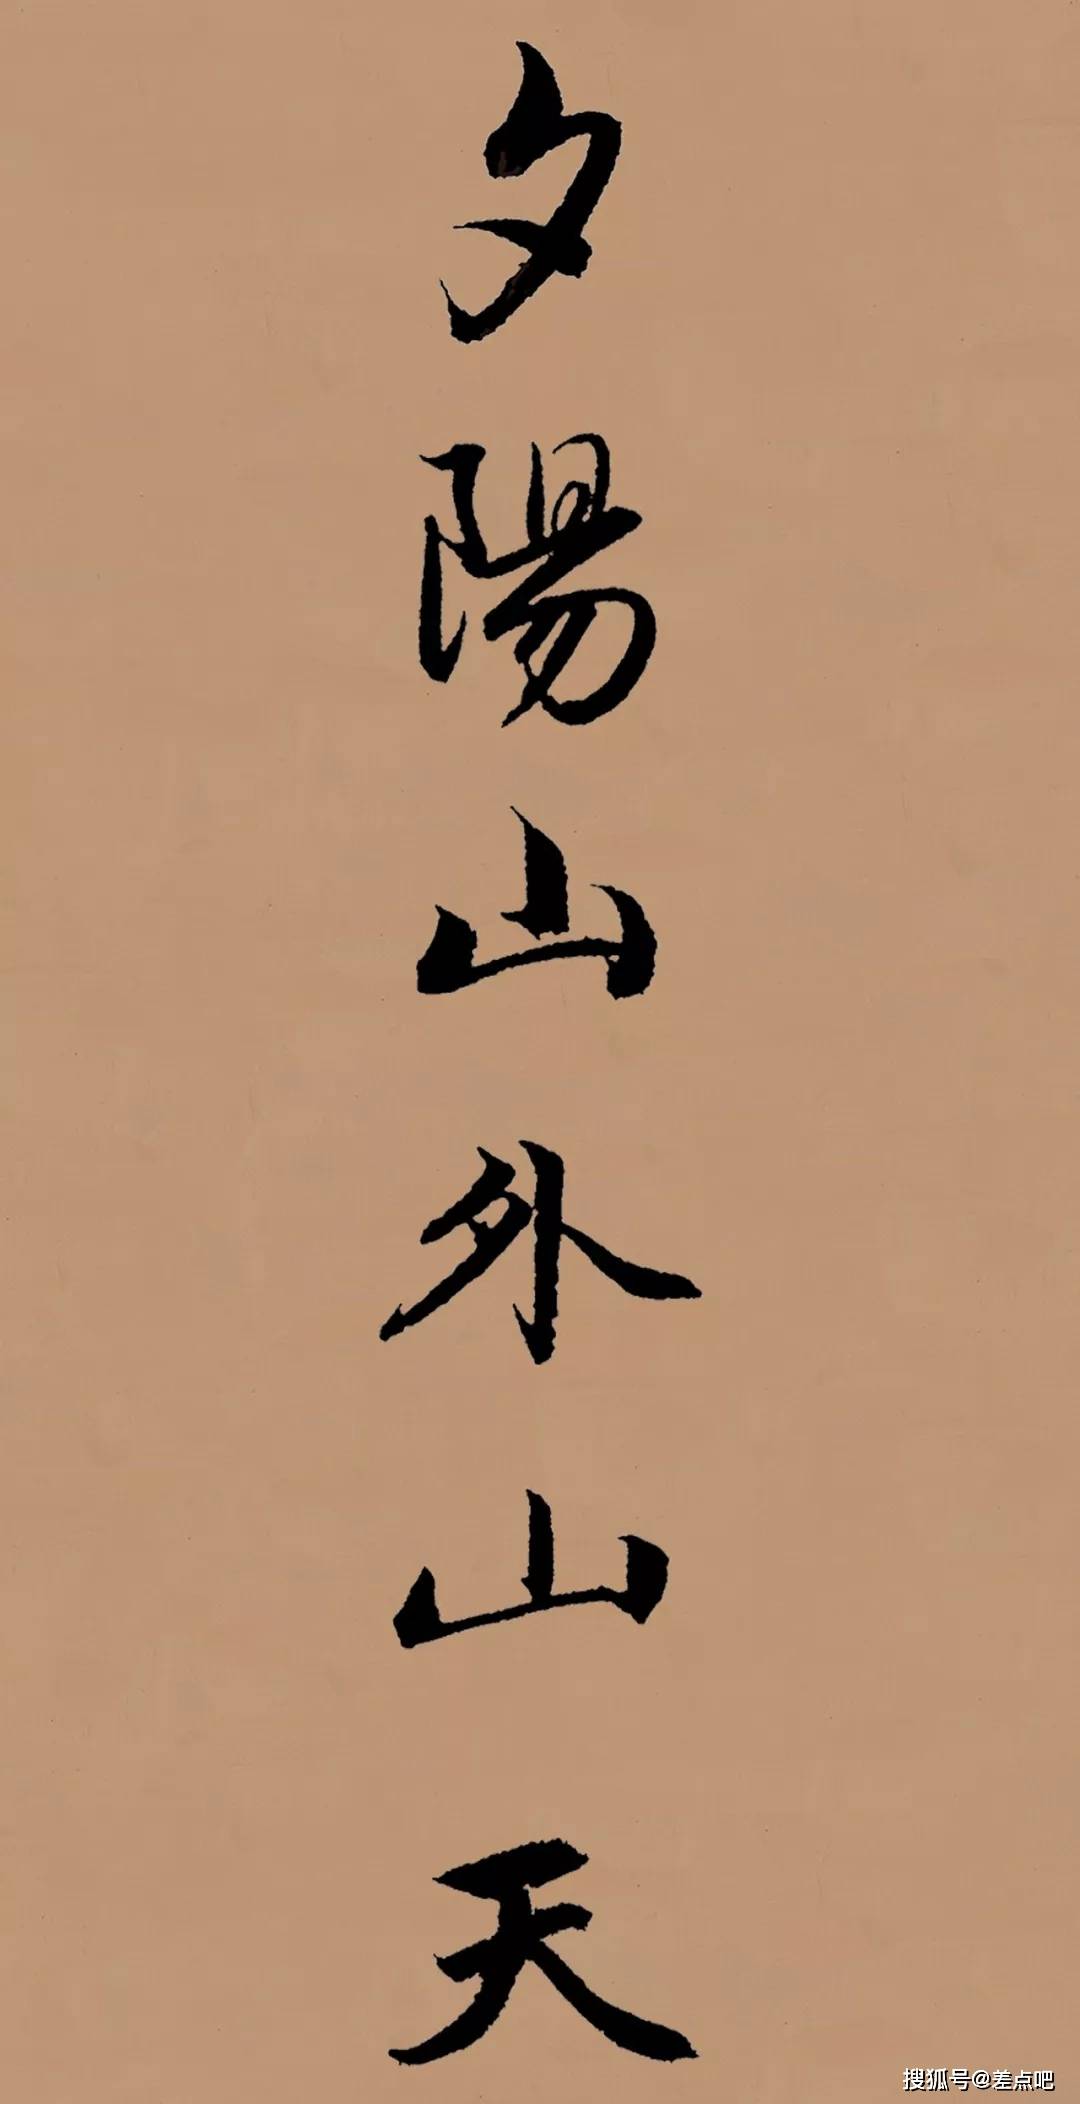 夕陽山外山天
搜狐号@差点吧